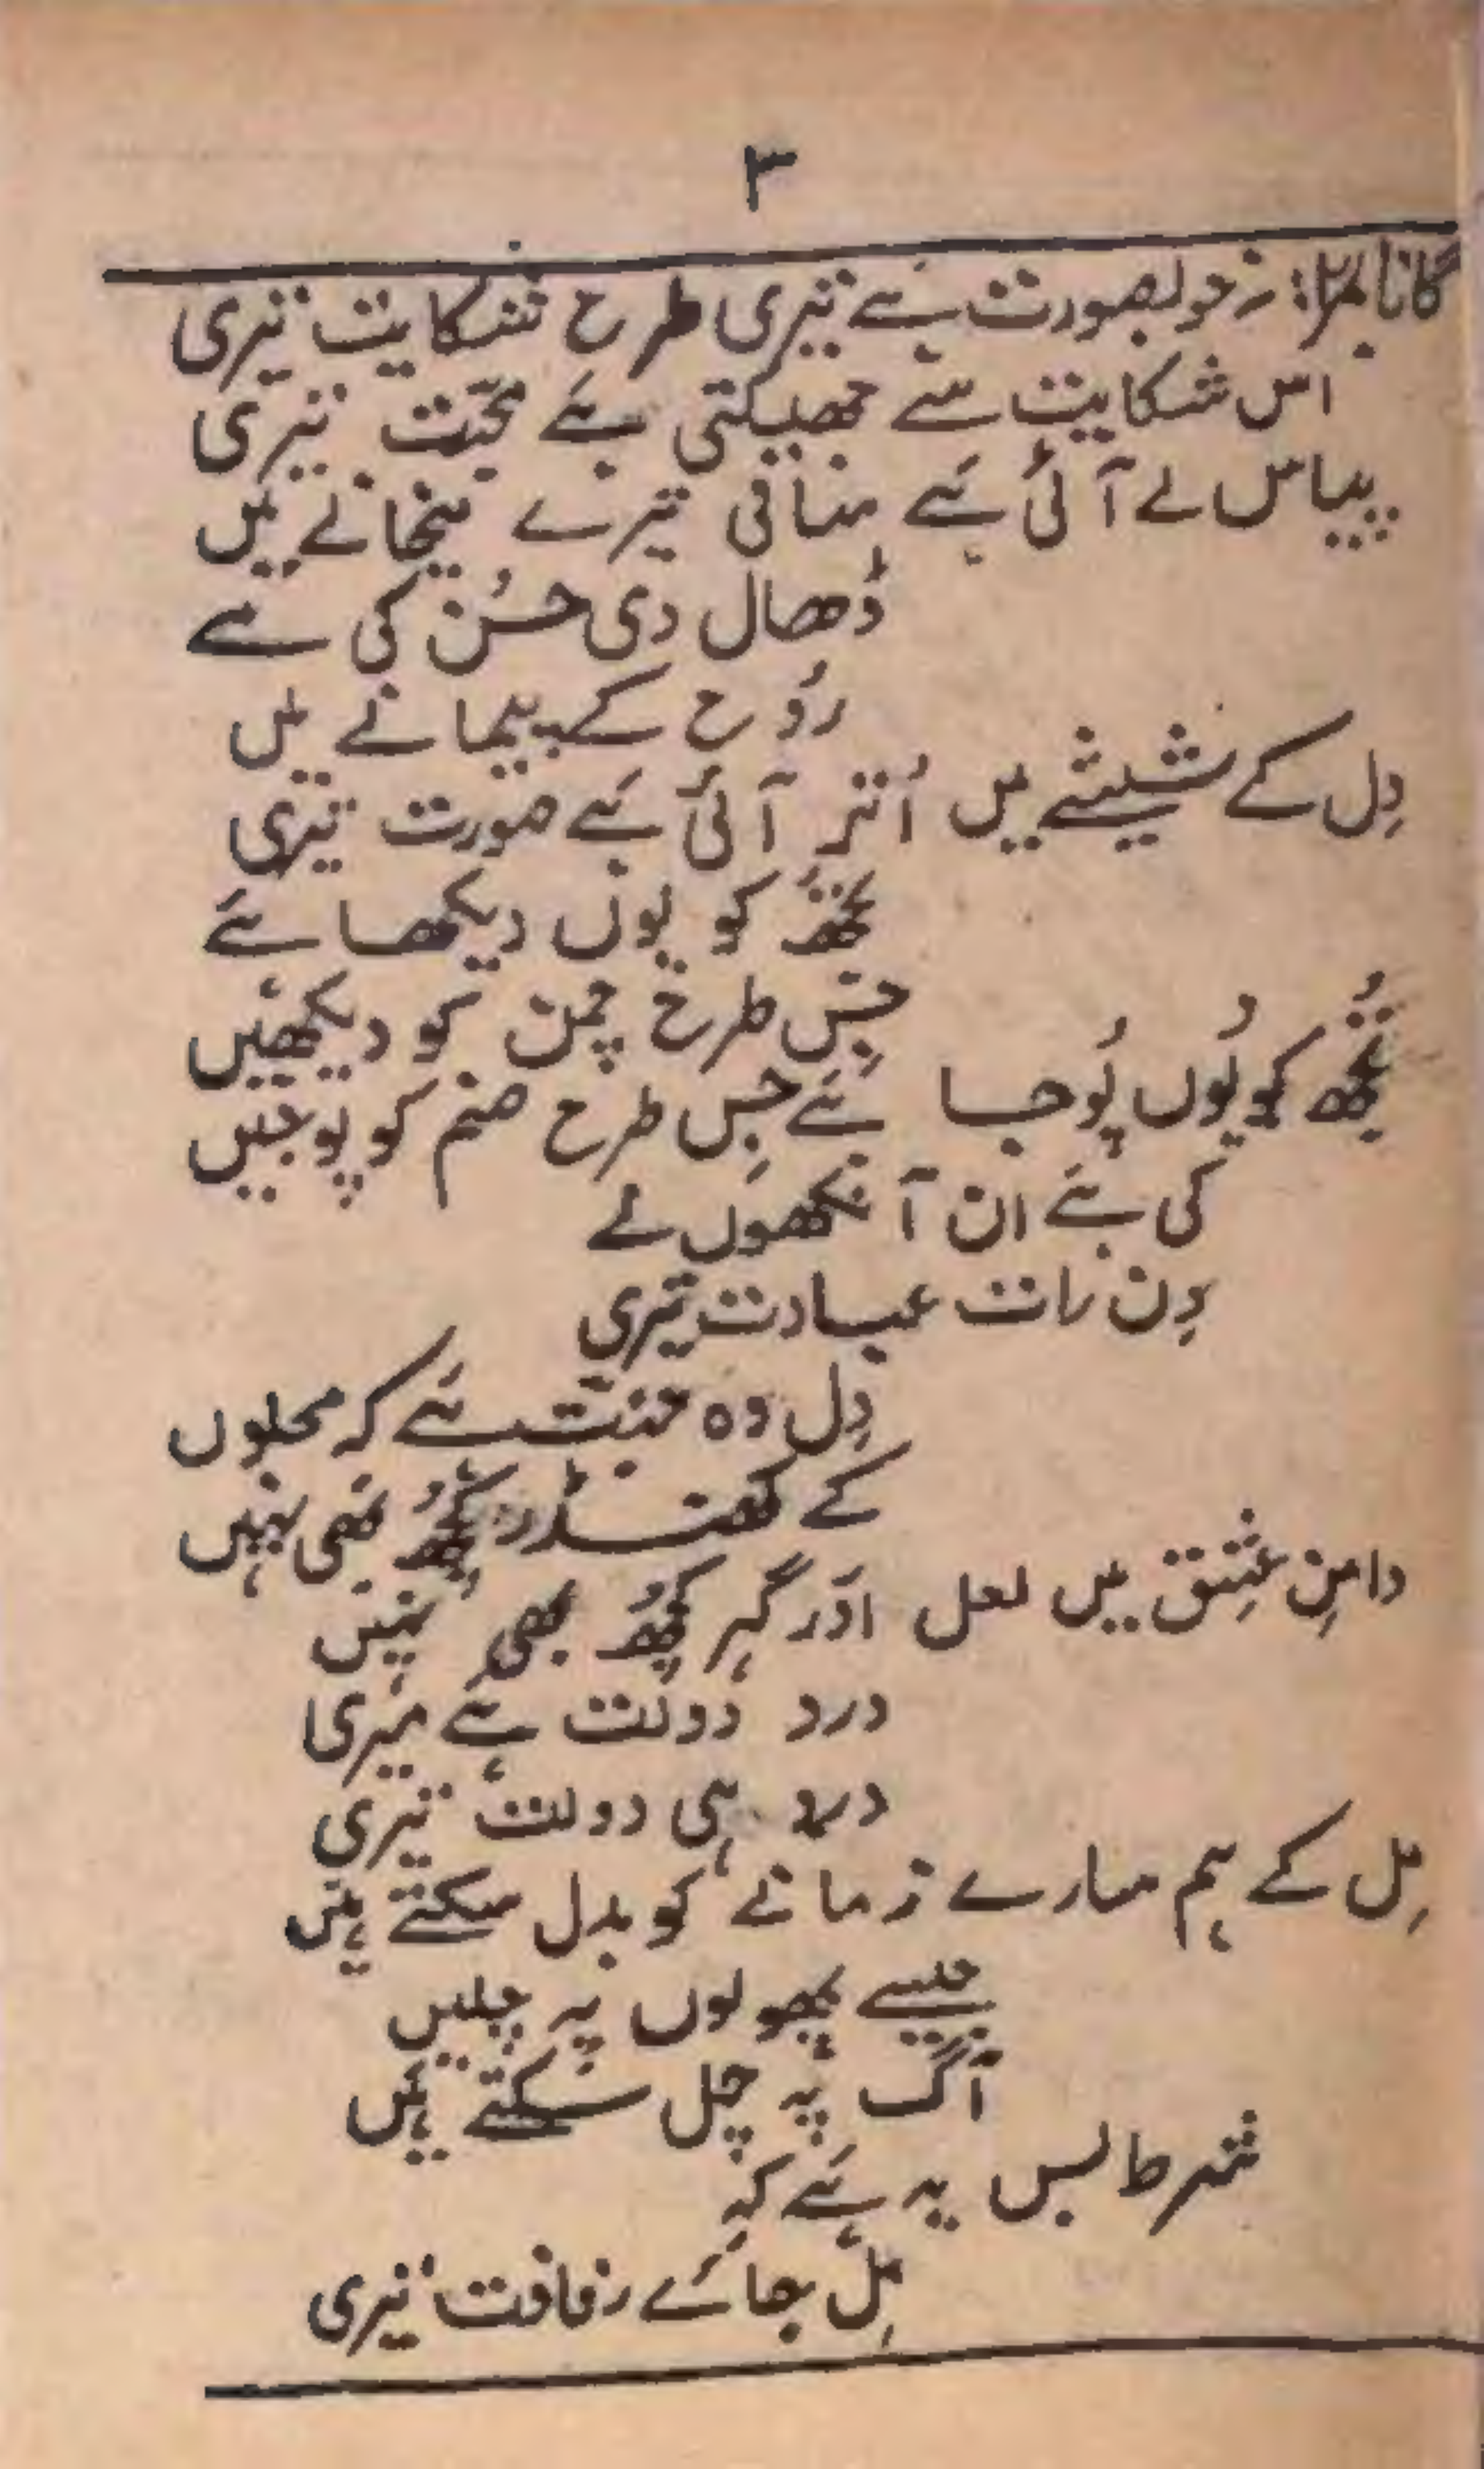 ۳
گانا نمبر۲: خوبصورت ہے تیری طرح شکایت تیری
اس شکایت سے جھپکتی ہے محبّت تیری
پیاس لے آئی ہے ساقی تیرے میخانے میں
ڈھال دی حسُن کی مے
رُوح کے پیمانے میں
دِل کے شیشے میں اُتر آئی ہے صورت تیری
تجھُ کو یوں دیکھا ہے
جِس طرح چمن کو دیکھیں
تُجھ کو یُوں پُوجا ہے جِس طرح صنم کو پوجیں
کی ہے ان آنکھوں نے
دِن رات عبادت تیری
دِل وہ جنّت ہے کہ محلوں
کے کھنڈر کچھُ بھی نہیں
دامنِ عِشق میں لعل اَور گہر کچھُ بھی نہیں
درد دولت ہے میری
درد ہی دولت تیری
مِل کے ہم سارے زمانے کو بدل سکتے ہیں
جیسے پھولوں پہ چلیں
آگ پہ چل سکتے ہیں
شرط بس یہ ہے کہ
مِل جائے رفاقت تیری